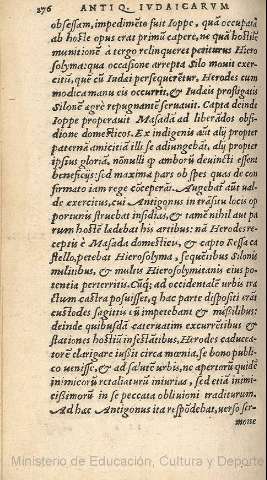 276 ANTIQ. IVDAICARVM
obsessam, impedimẽto fuit Ioppe, quã occupatã
ab hoste opus erat primũ capere, ne quã hostiũ
munitionẽ à tergo relinqueret petiturus Hiero
solyma: qua occasione arrepta Silo mouit exer-
citũ, quẽ cũ Iudæi persequerẽtur, Herodes cum
modica manu eis occurrit, & Iudæis profligatis
Silonẽ ægrè repugnantẽ seruauit. Capta deinde
Ioppe properauit Masadã ad liberãdos obsi-
dione domesticos. Ex indigenis aũt alij propter
paternã amicitiã illi se adiungebãt, alij propter
ipsius gloriã, nonnulli q̃ amborũ deuincti essent
beneficijs: sed maxima pars ob spes quas de con
firmato iam rege cõceperãt. Augebãt aũt val-
de exercitus, cui Antigonus in trãsitu locis op
portunis struebat insidias, & tamẽ nihil aut pa
rum hostẽ lædebat his artibus: nã Herodes re-
ceptis è Masada domesticis, & capto Ressa ca
stello, petebat Hierosolyma, sequẽtibus Silonis
militibus, & multis Hierosolymitanis eius po-
tentia perterritis. Cũq; ad occidentalẽ urbis tra
ctum castra posuisset, q̃ hac parte dispositi erãt
custodes sagittis eũ impetebant & missilibus:
deinde quibusdã cateruatim excurrẽtibus &
stationes hostiũ infestãtibus, Herodes caducea-
torẽ clarigare iussit circa mœnia, se bono publi
co uenisse, & ad salutẽ urbis, nec apertorũ quidẽ
inimicorũ retaliaturũ iniurias, sed etiã inimi-
cissimorũ in se peccata obliuioni traditurum.
Ad hæc Antigonus ita respõdebat, uerso ser-
mone
Ministerio de Educación, Cultura y Deporte